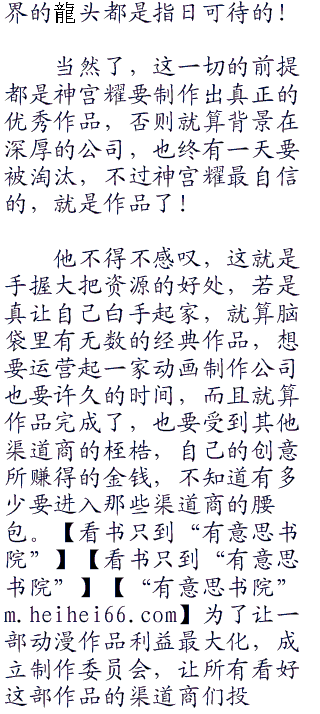 界的龍头都是指日可待的！
当然了，这一切的前提
都是神宫耀要制作出真正的
优秀作品，否则就算背景在
深厚的公司，也终有一天要
被淘汰，不过神宫耀最自信
的，就是作品了！
他不得不感叹，这就是
手握大把资源的好处，若是
真让自己白手起家，就算脑
袋里有无数的经典作品，想
要运营起一家动画制作公司
也要许久的时间，而且就算
作品完成了，也要受到其他
渠道商的桎梏，自己的创意
所赚得的金钱，不知道有多
少要进入那些渠道商的腰
包。【看书只到“有意思书
院”】【看书只到“有意思
书院”】【“有意思书院”
m.heihei66.com】为了让一
部动漫作品利益最大化，成
立制作委员会，让所有看好
这部作品的渠道商们投